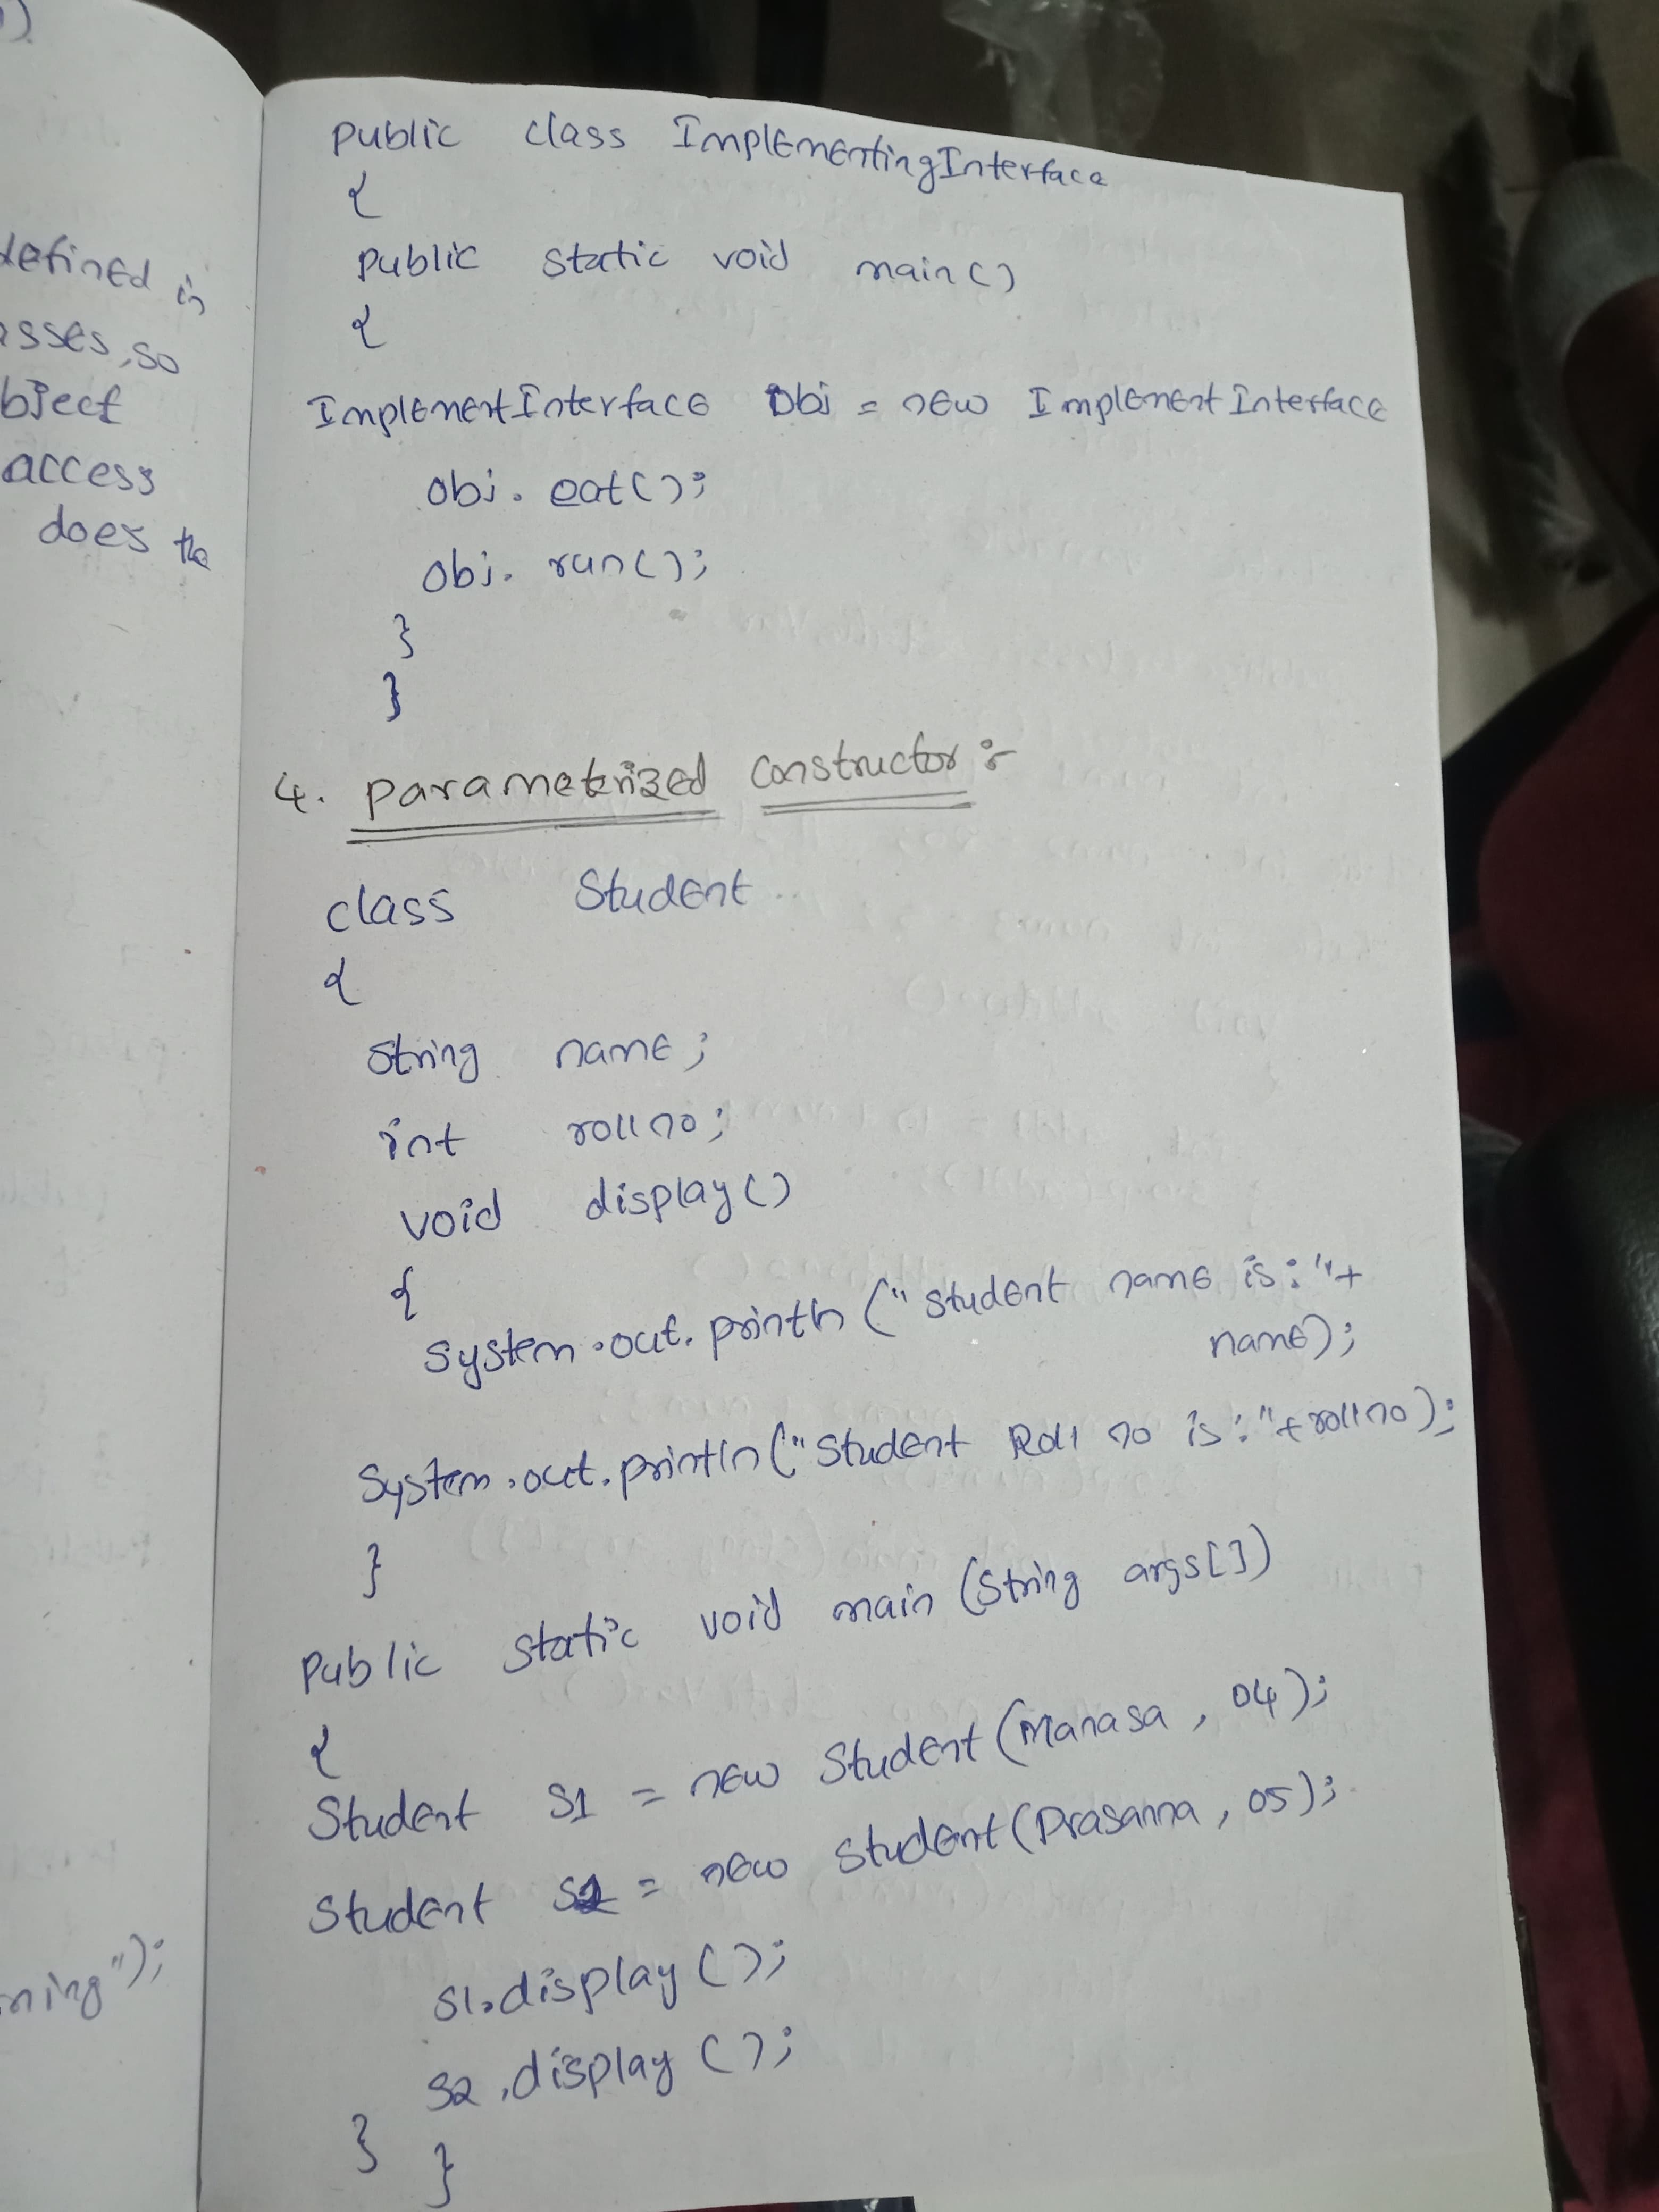 defined in
asses, so
bject
access
does the
ming");
public class ImplementingInterface
{
public static void main()
{
ImplementInterface Obj = new ImplementInterface
obj. eat();
obj. run();
}
}
4. parametrized constructor :-
class Student
{
String name;
int rollno;
void display()
{
System.out.println("student name is:"+
name);
System.out.println("Student Roll no is:"+rollno);
}
Public static void main (String args[])
{
Student S1 = new Student (Manasa, 04);
Student S2 = new Student (Prasanna, 05);
S1.display();
S2.display();
}
}